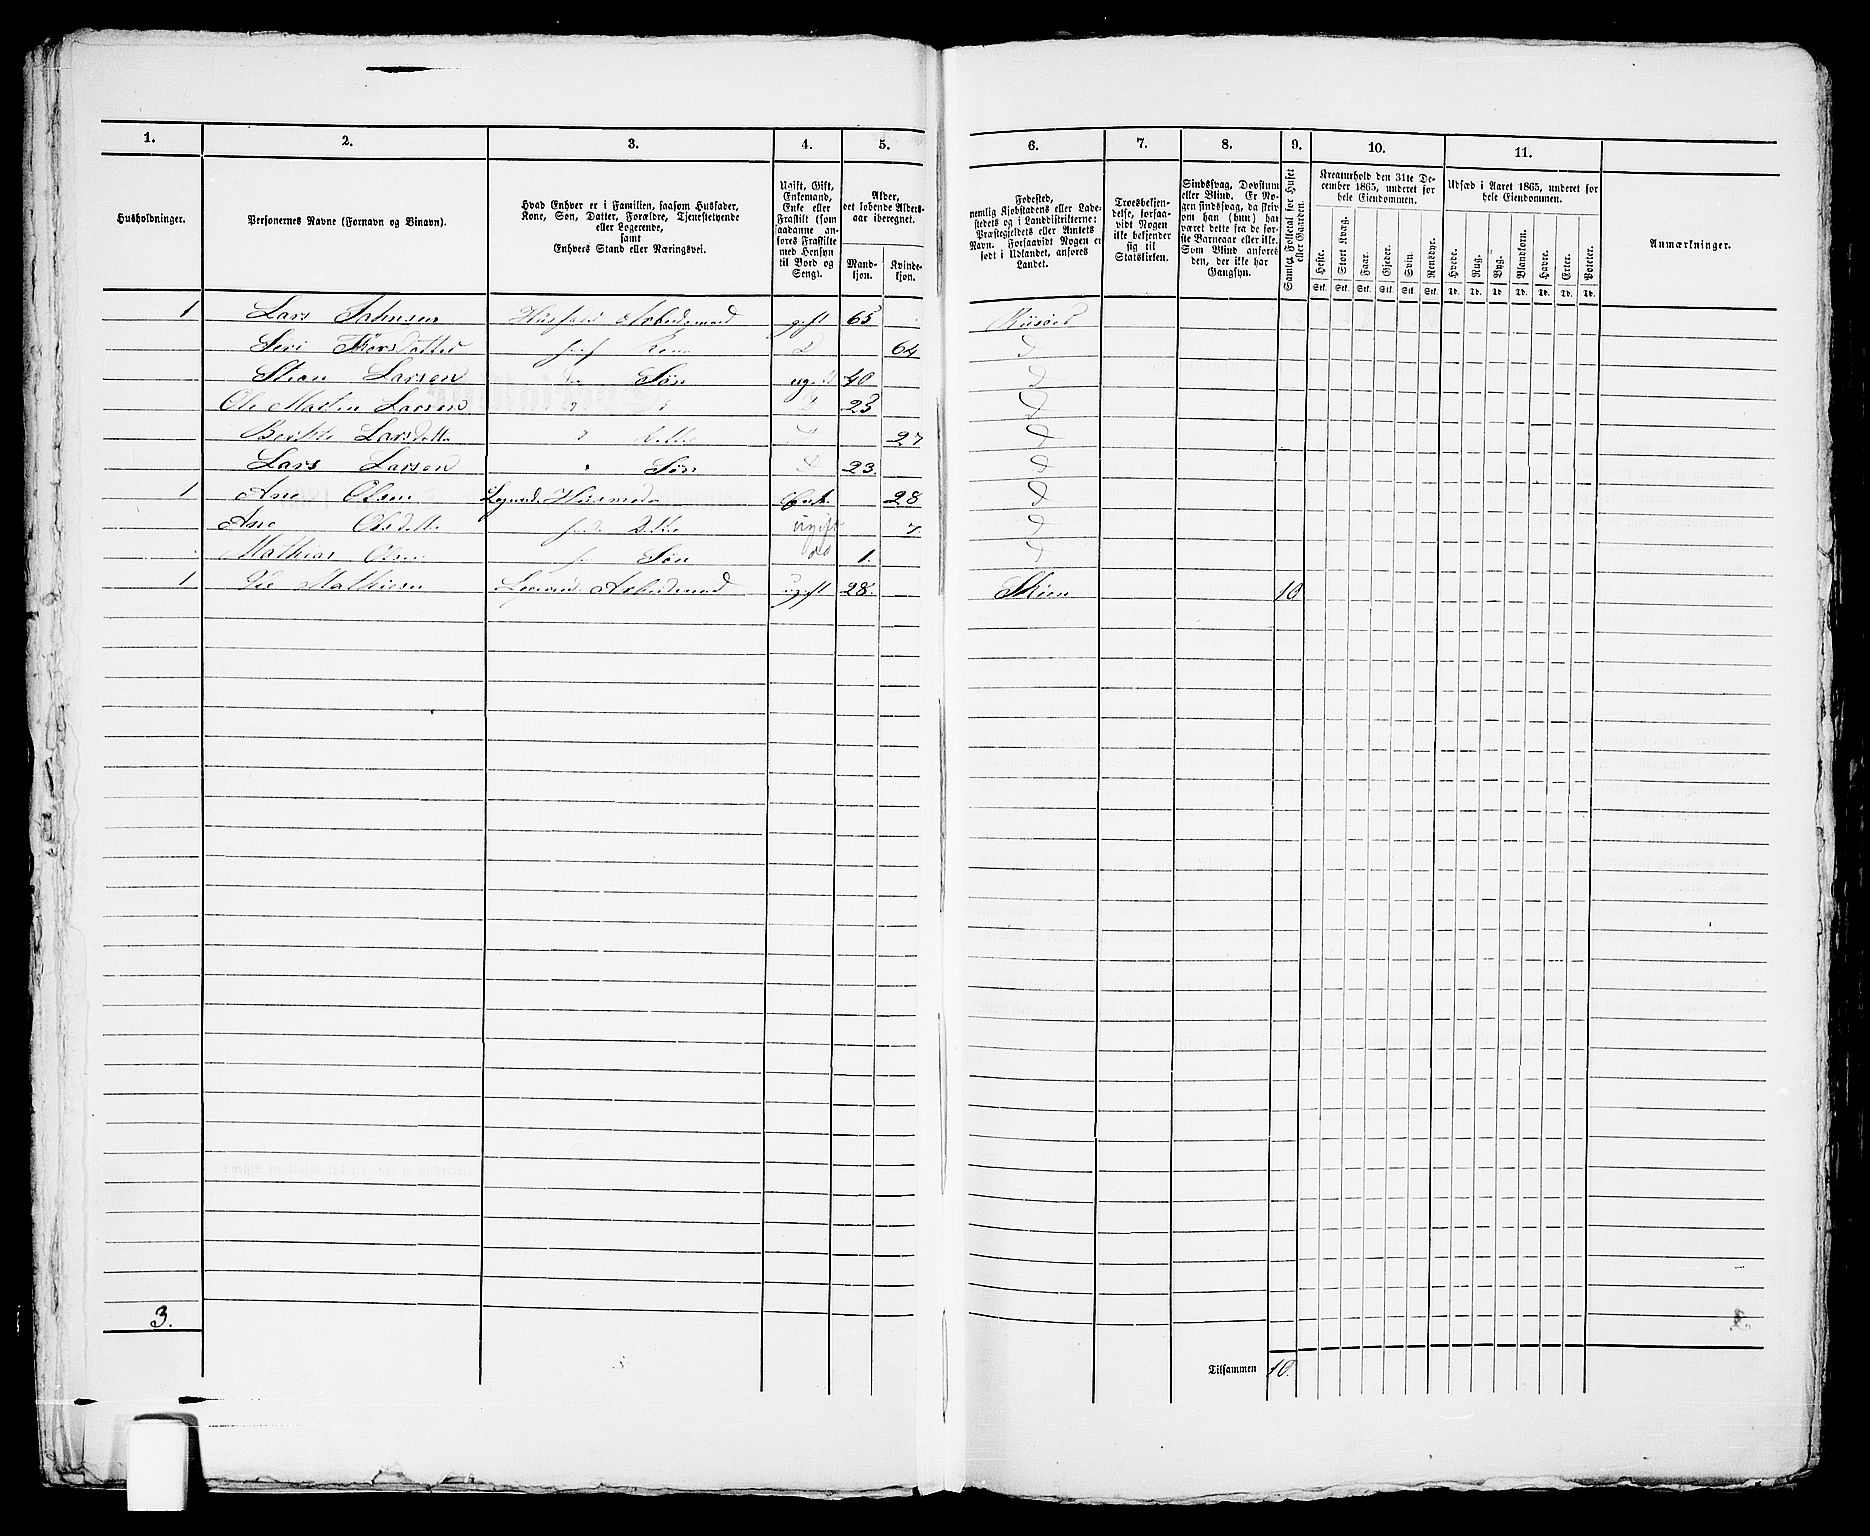 1. 2. 3. 4. 5. 6. 7. 8. 9. 10. 11.
Husholdninger.
Personernes Navne (Fornavn og Binavn).
Hvad Enhver er i Familien, saasom Husfader,
Kone, Søn, Datter, Forældre, Tjenestetyende
eller Logerende,
samt
Enhvers Stand eller Næringsvei.
Ugift, Gift,
Enkemand,
Enke eller
Fraskilt (som
saadanne an-
føres Fraskilte
med Hensyn
til Bord og
Seng).
Alder,
det løbende Alders-
aar iberegnet.
Mand-
kjøn.
Kvinde-
kjøn.
Fødested,
nemlig Kjøbstadens eller Lade-
stedets og i Landdistrikterne:
Præstegjeldets eller Amtets
Navn. Forsaavidt Nogen er
født i Udlandet, anføres
Landet.
Troesbekjen-
delse, forsaa-
vidt Nogen
ikke bekjender
sig til
Statskirken.
Sindssvag, Døvstum
eller Blind. Er No-
gen sindssvag, da skriv
om han (hun) har
været dette fra de før-
ste Barneaar eller ikke.
Som Blind ansøres
den, der ikke har
Gangsyn.
Samlet Folketal for Huset
eller Gaarden.
Kreaturhold den 31te De-
cember 1865, underet for
hele Eiendommen.
Heste. Stort Kvæg. Faar. Gjeder. Svin. Rensdyr.
Stk. Stk. Stk. Stk. Stk. Stk.
Udsæd i Aaret 1865, underet for
hele Eiendommen.
Hvede. Rug. Byg. Blandkorn. Havre. Erter. Poteter.
Td. Td. Td. Td. Td. Td. Td.
Anmærkninger.
1 Lars Johnsen Husfader Arbeidsmand gift 65 Riisøer
Siri Thorsdatter Kone D 64 d
Stian Larsen Søn ugift 40 d
Ole Martin Larsen D 25 d
Larsdatter 27 d
Lars Larsen Søn D 23. d
1 Ane Olsen 28 d
Ane Olsdatter ugift 7. d
Mathias Olsen Søn do 1. d
1 Mathisen Arbeidsmand ugift 28. Skien 10
3.
Tilsammen 10.